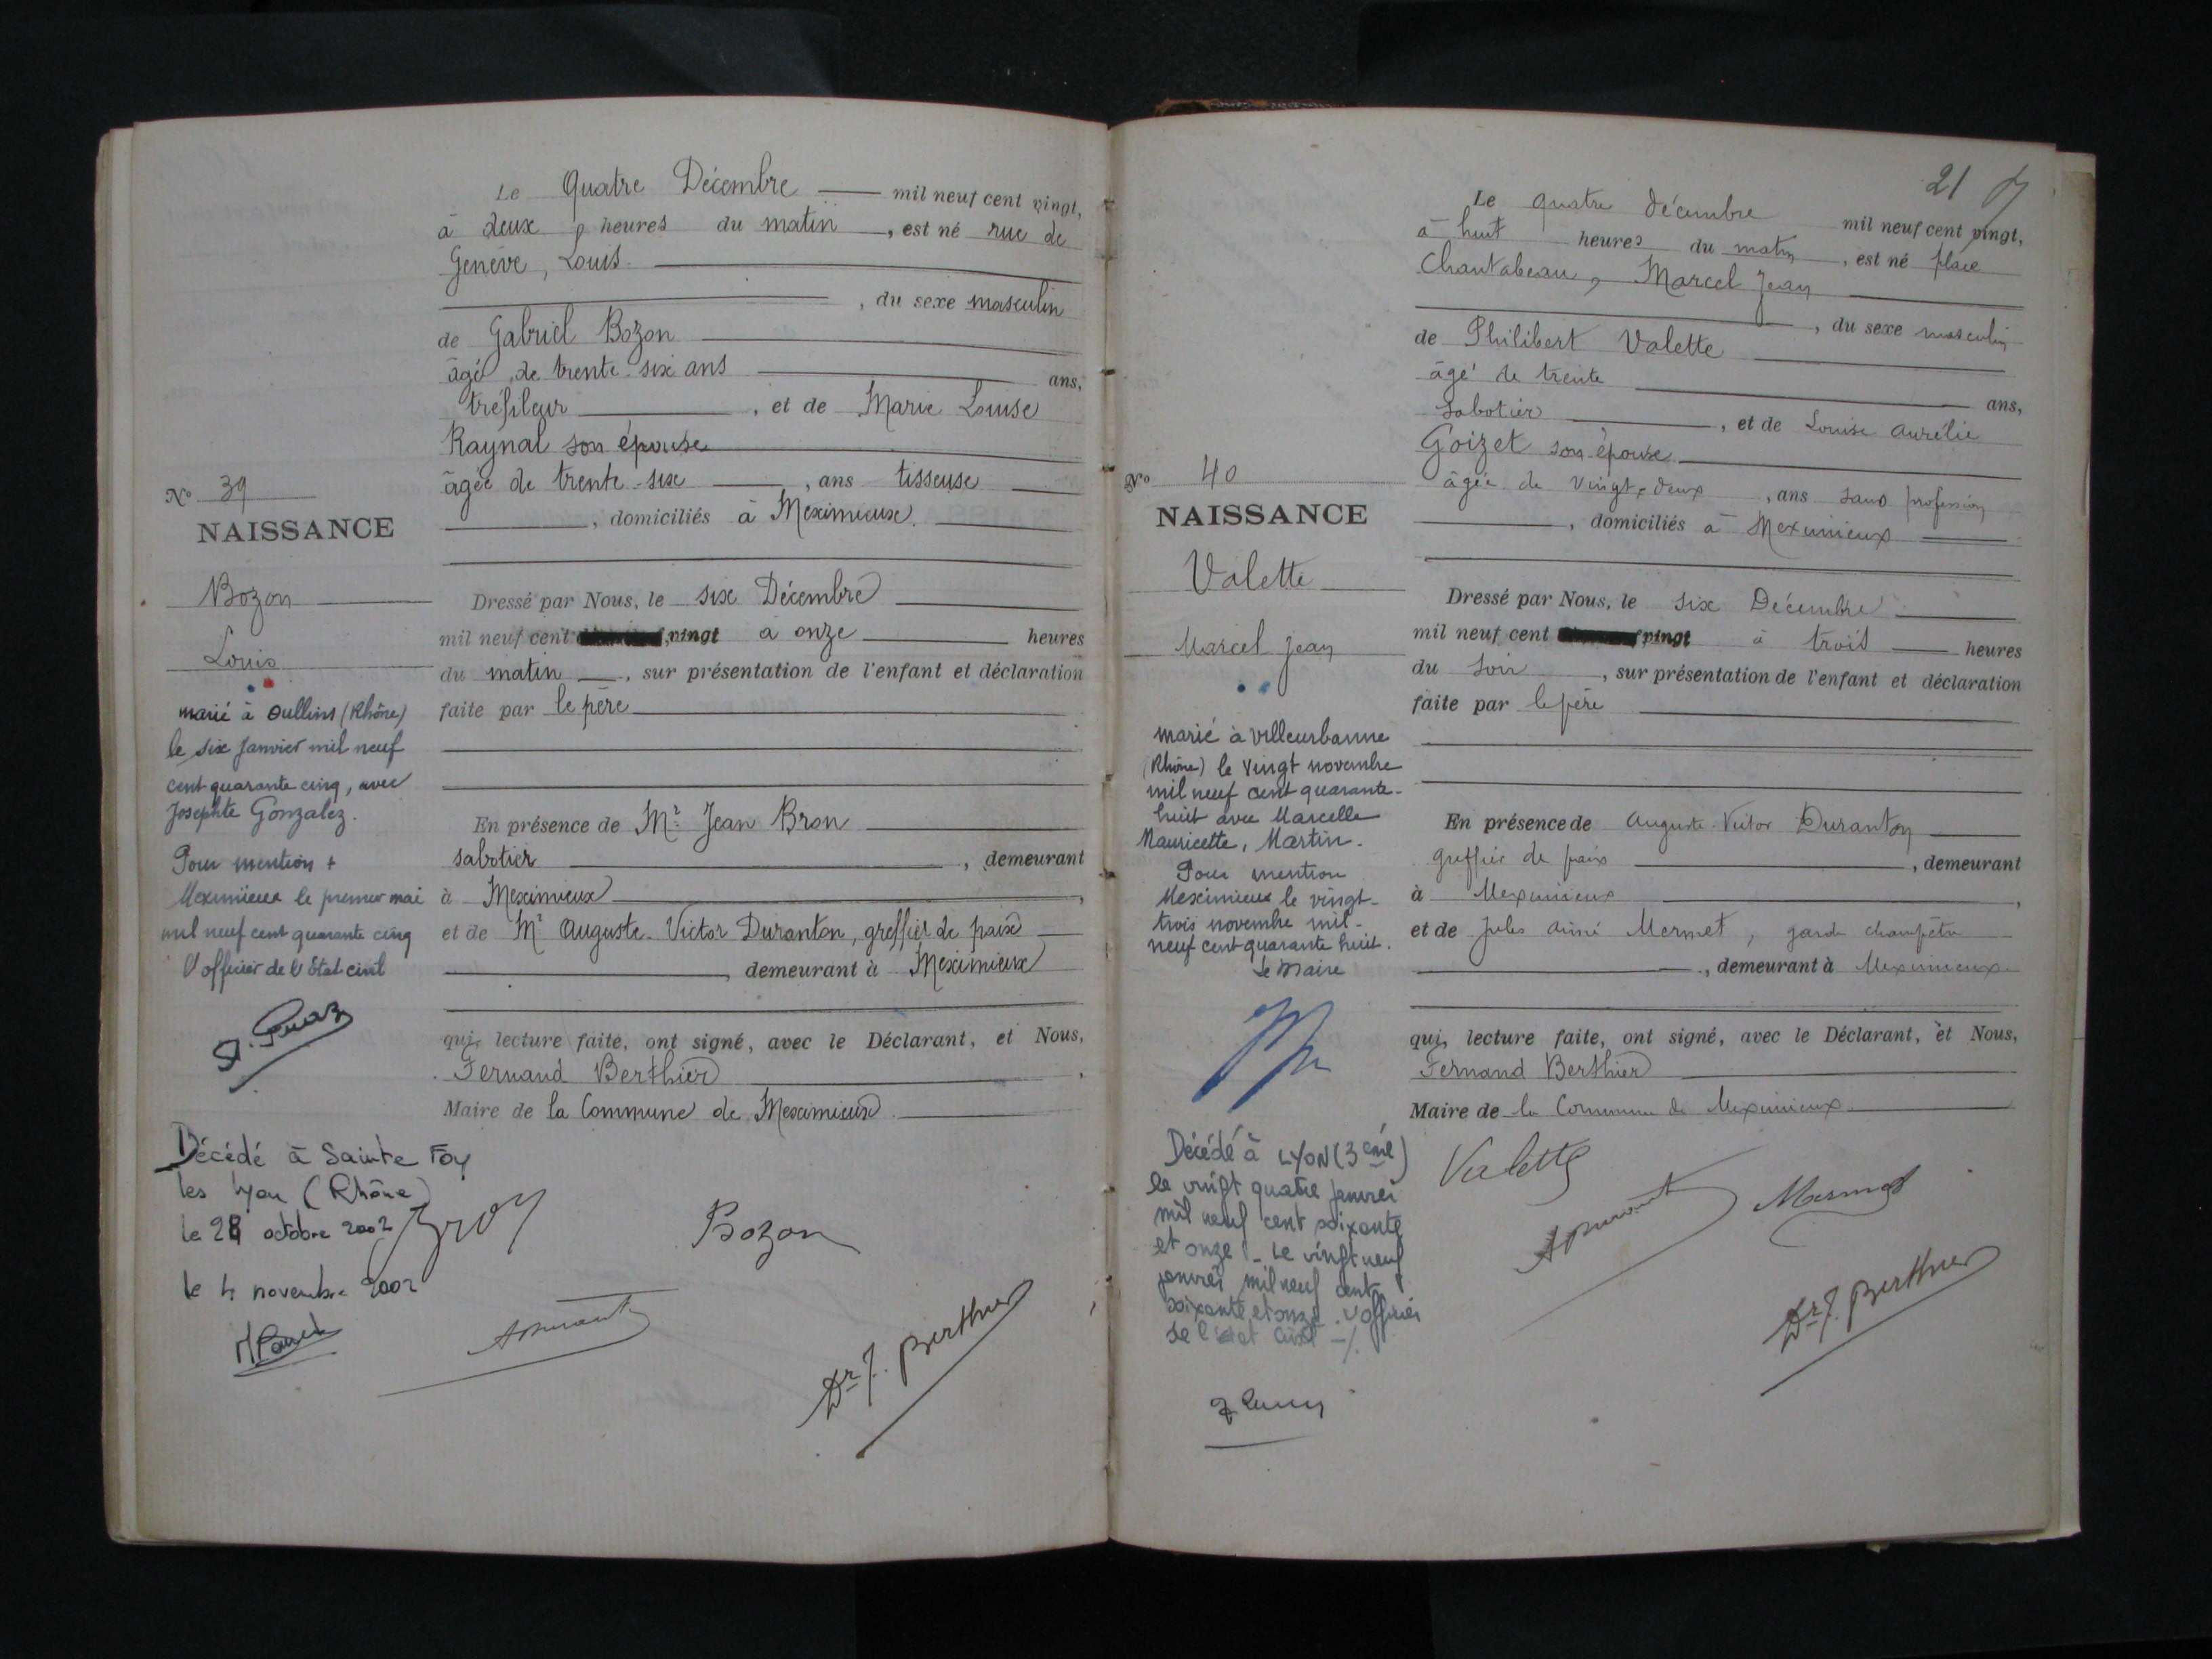 Le Quatre Décembre mil neuf cent vingt,
à deux heures du matin, est né rue de
Genève, Louis
, du sexe masculin
de Gabriel Bozon
âgé de trente-six ans ans,
tréfileur, et de Marie Louise
Raynal son épouse
âgée de trente-six, ans tisseuse
, domiciliés à Meximieux.
No 39
NAISSANCE
Bozon
Louis
Dressé par Nous, le six Décembre
mil neuf cent vingt à onze heures
du matin, sur présentation de l'enfant et déclaration
faite par le père
En présence de Mr Jean Bron
sabotier, demeurant
à Meximieux,
et de Mr Auguste-Victor Duranton, greffier de paix
, demeurant à Meximieux
qui, lecture faite, ont signé, avec le Déclarant, et Nous,
Fernand Berthier,
Maire de la Commune de Meximieux.
marié à Oullins (Rhône)
le six Janvier mil neuf
cent quarante cinq, avec
Josephte Gonzalez.
Pour mention
Meximieux le premier mai
mil neuf cent quarante cinq
l'officier de l'Etat civil
Décédé à Sainte Foy
les Lyon (Rhône)
le 28 octobre 2002
le 4 novembre 2002
Bron
Bozon
Dr F. Berthier
21
Le quatre décembre mil neuf cent vingt,
à huit heures du matin, est né place
Chantabeau, Marcel Jean
, du sexe masculin
de Philibert Valette
âgé de trente ans,
Sabotier, et de Louise Aurélie
Goizet son épouse
âgée de vingt-deux, ans sans profession
, domiciliés à Meximieux
No 40
NAISSANCE
Valette
Marcel Jean
Dressé par Nous, le six Décembre
mil neuf cent vingt à trois heures
du soir, sur présentation de l'enfant et déclaration
faite par le père
En présence de Auguste-Victor Duranton
greffier de paix, demeurant
à Meximieux,
et de Jules Aimé Mermet, garde champêtre
, demeurant à Meximieux
qui, lecture faite, ont signé, avec le Déclarant, et Nous,
Fernand Berthier
Maire de la Commune de Meximieux
marié à Villeurbanne
(Rhône) le vingt novembre
mil neuf cent quarante-
huit avec Marcelle
Mauricette, Martin.
Pour mention
Meximieux le vingt-
trois novembre mil-
neuf cent quarante huit.
Le Maire
Décédé à LYON (3 eme)
le vingt quatre janvier
mil neuf cent soixante
et onze - Le vingt neuf
janvier mil neuf cent
soixante et onze. L'officier
de l'état civil -/.
Valette
Mermet
Dr F. Berthier